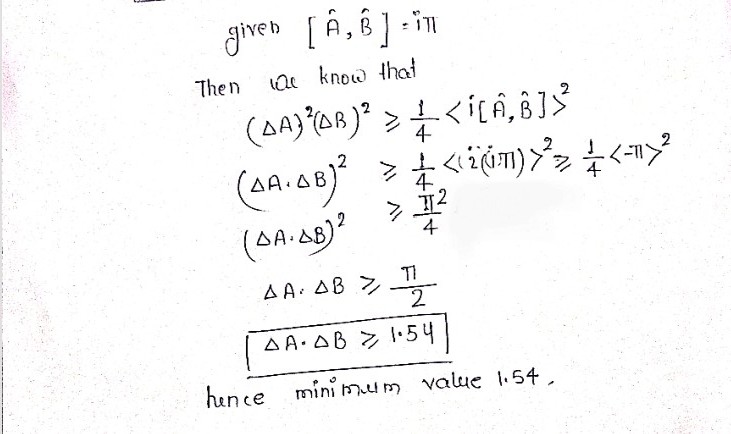 given [Â, B̂] = iπ
Then we know that
(ΔA)²(ΔB)² ≥ 1/4 <i[Â, B̂]>²
(ΔA.ΔB)² ≥ 1/4 <(i(iπ)>² ≥ 1/4 <-π>²
(ΔA.ΔB)² ≥ π²/4
ΔA. ΔB ≥ π/2
ΔA. ΔB ≥ 1.54
hence minimum value 1.54.